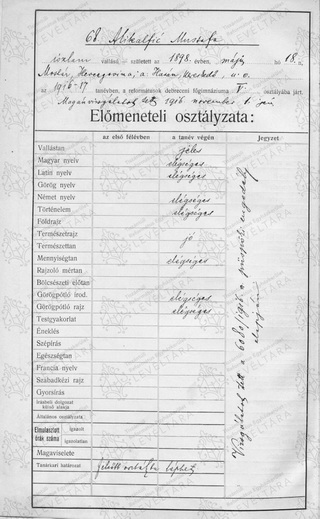 68. Alikalfić Mustafa
iszlam vallású – született az 1898. évben, május hó 18.n.
Mostár, Hercegovina; a. Hasan,
az 1916–17 tanévben, a reformátusok debreceni főgimnáziuma V. osztályába járt.
Magánvizsgálatot tett 1916 november 1-jén
Előmeneteli osztályzata:
az első félévben a tanév végén Jegyzet
Vallástan jeles
Magyar nyelv elégséges
Latin nyelv elégséges
Görög nyelv
Német nyelv elégséges
Történelem elégséges
Földrajz
Természetrajz
Természettan jó
Mennyiségtan elégséges
Rajzoló mértan
Bölcsészeti előtan
Görögpótló irod. elégséges
Görögpótló rajz elégséges
Testgyakorlat
Éneklés
Szépírás
Egészségtan
Francia nyelv
Szabadkézi rajz
Gyorsírás
Írásbeli dolgozat külső alakja
Általános osztályzata
Elmulasztott órák száma igazolt
igazolatlan
Magaviselete
Tanárkari határozat felsőbb osztályba léphet
Vizsgálatot tett a püspöki engedély alapján